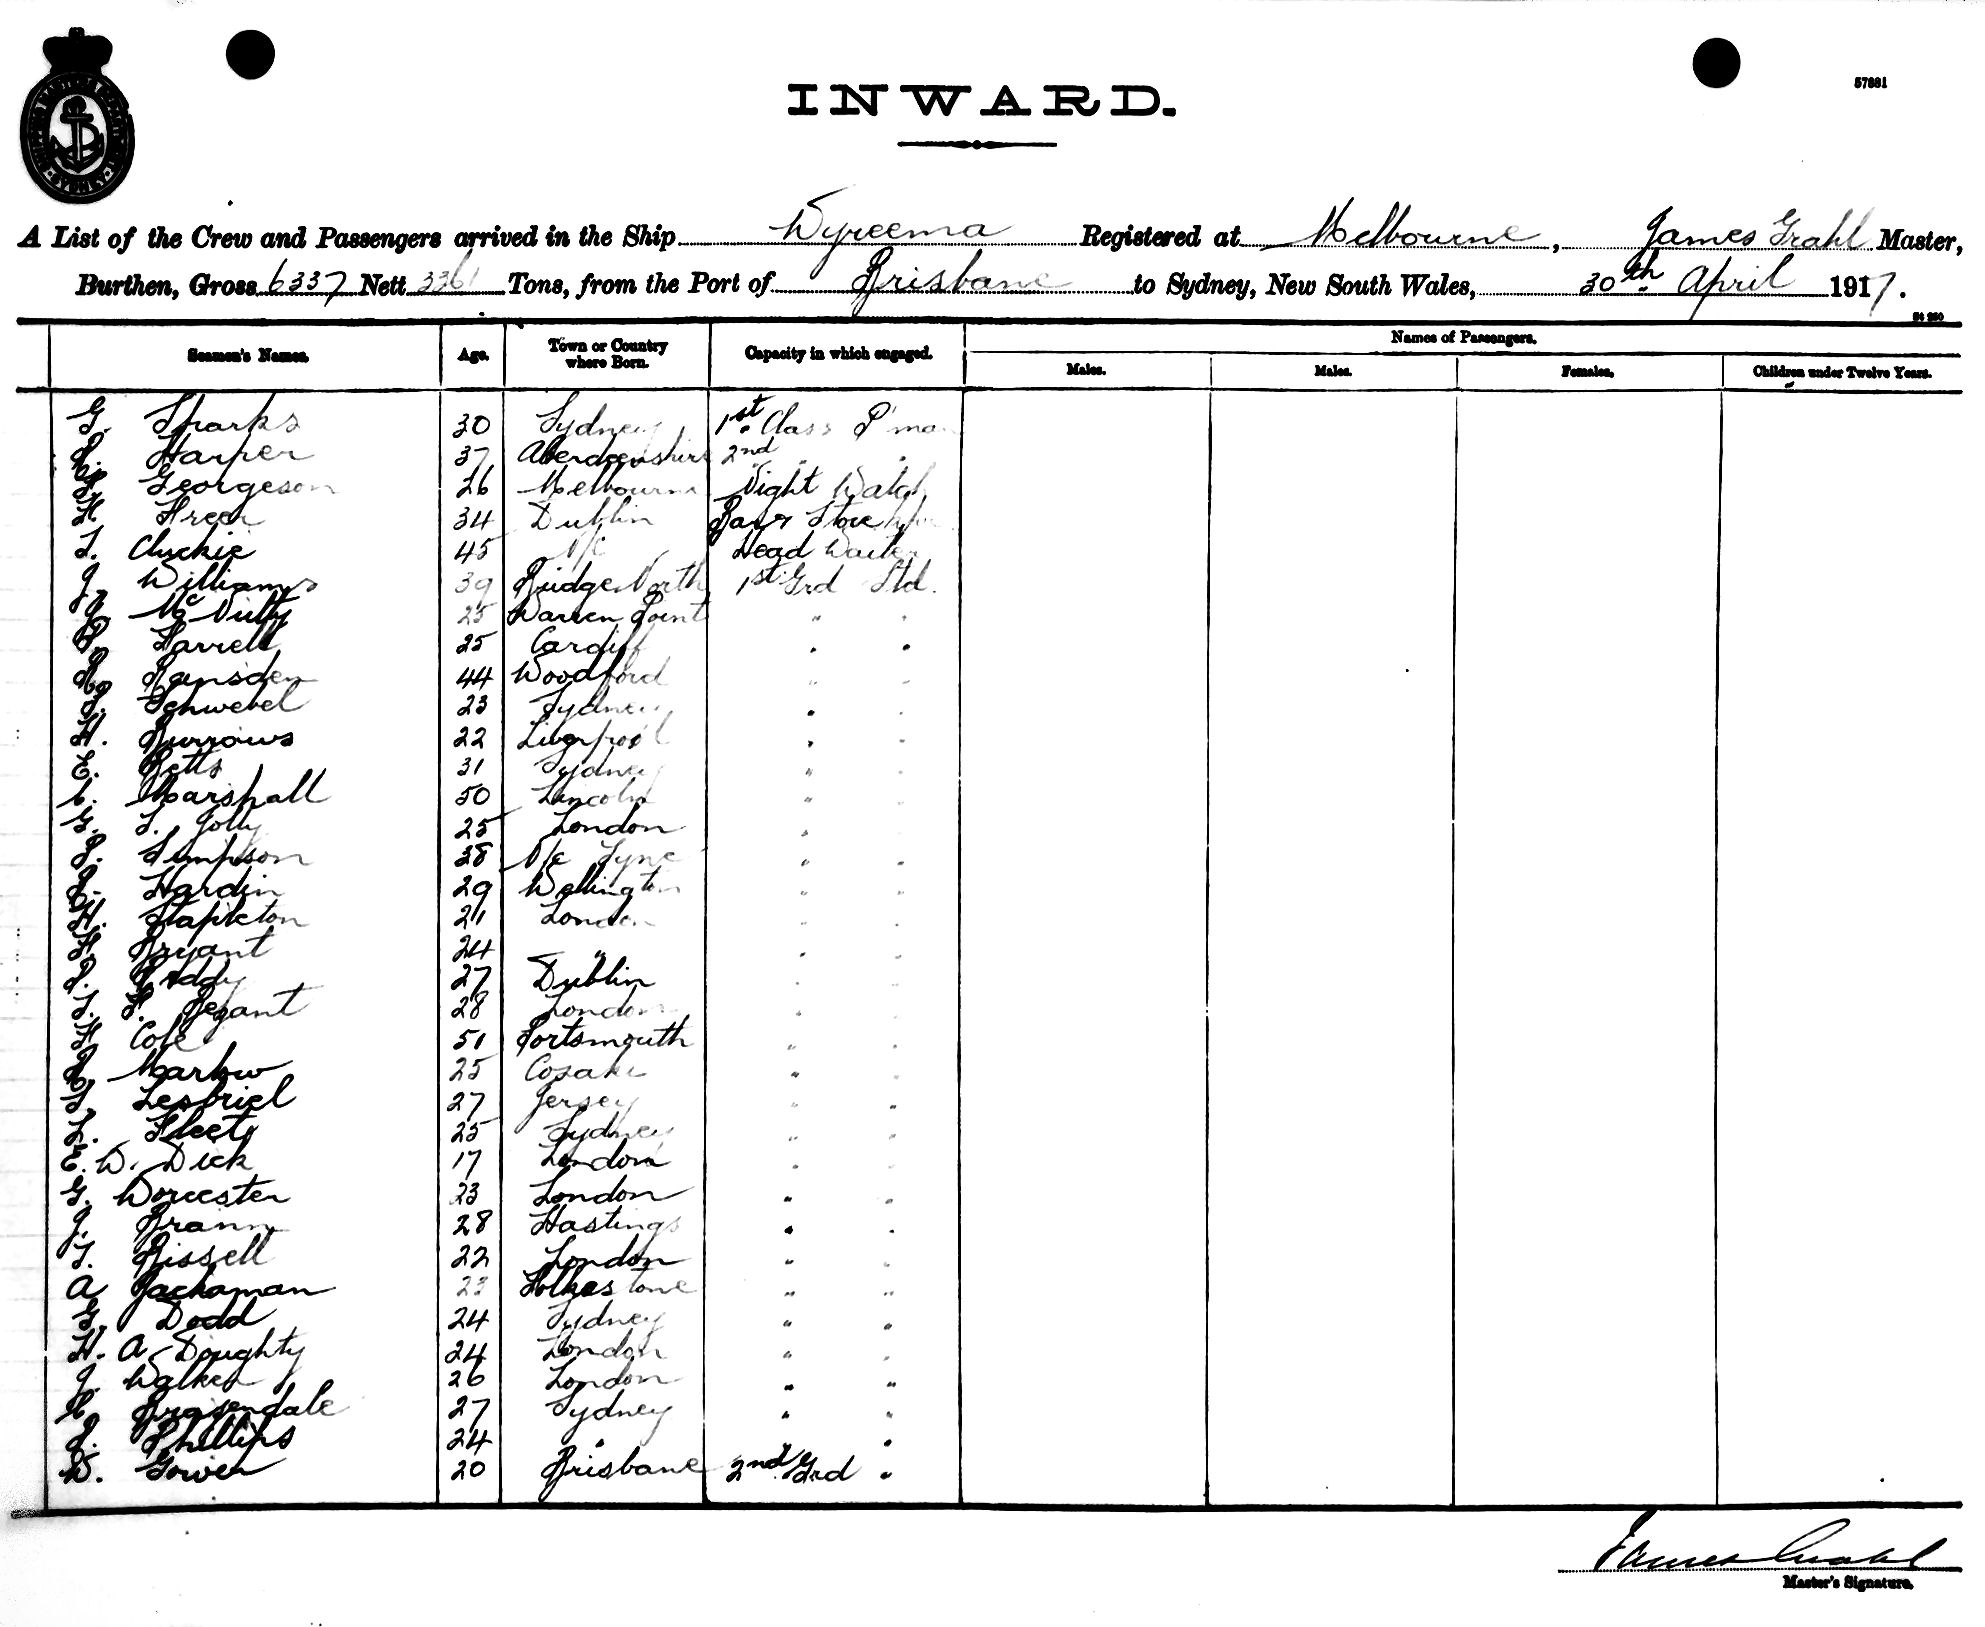 INWARD.
57881
A List of the Crew and Passengers arrived in the Ship Wyreema Registered at Melbourne, James Grahl Master,
Burthen, Gross 6337 Nett 3361 Tons, from the Port of Brisbane to Sydney, New South Wales, 30th April 1917.
Seamen's Names. Age. Town or Country where Born. Capacity in which engaged. Names of Passengers.
Males. Males. Females. Children under Twelve Years.
G. Sparks 30 Sydney 1st Class P'man
Harper 37 Aberdeenshire 2nd " "
Georgeson 26 Melbourne Night Watch
34 Dublin
45 N/C Head Waiter
J. Williams 39 Bridge North 1st Grd Std.
J. McNulty 25 Warren Point " "
Farrell 25 Cardiff " "
Ramsden 44 Woodford " "
Schwebel 23 Sydney " "
H. Burrows 22 Liverpool " "
E. Betts 31 Sydney " "
C. Marshall 50 Lincoln " "
G. S. Jolly 25 London " "
J. Simpson 38 N/c Tyne " "
Hardin 29 Wellington " "
H. Stapleton 21 London " "
Bryant 24 " " "
27 Dublin " "
Bezant 28 London " "
Cole 51 Portsmouth " "
Marlow 25 Cosack " "
Lesbriel 27 Jersey " "
25 Sydney " "
E. W. Dick 17 London " "
G. Worcester 23 London " "
J. Brann 28 Hastings " "
Bissell 22 London " "
A Jachaman 23 Folkestone " "
G. Dodd 24 Sydney " "
H. A Doughty 24 London " "
J. Walker 26 London " "
Braisendale 27 Sydney " "
Phillips 24 " " "
W. Gower 20 Brisbane 2nd Grd "
James Grahl
Master's Signature.